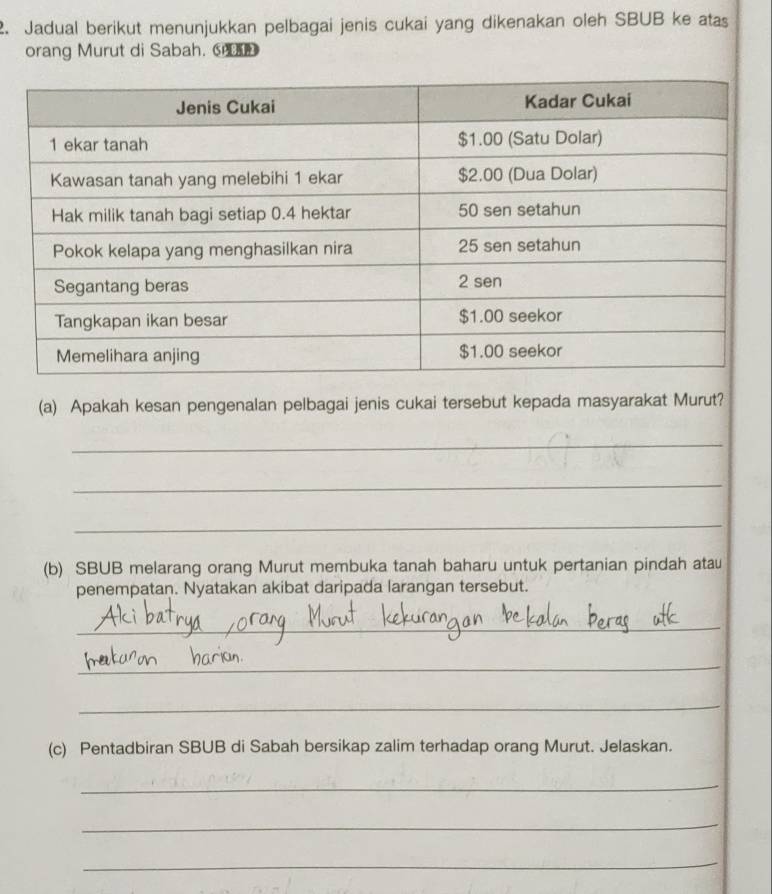 2. Jadual berikut menunjukkan pelbagai jenis cukai yang dikenakan oleh SBUB ke atas
orang Murut di Sabah.
Jenis Cukai Kadar Cukai
1 ekar tanah $1.00 (Satu Dolar)
Kawasan tanah yang melebihi 1 ekar $2.00 (Dua Dolar)
Hak milik tanah bagi setiap 0.4 hektar 50 sen setahun
Pokok kelapa yang menghasilkan nira 25 sen setahun
Segantang beras 2 sen
Tangkapan ikan besar $1.00 seekor
Memelihara anjing $1.00 seekor
(a) Apakah kesan pengenalan pelbagai jenis cukai tersebut kepada masyarakat Murut?
(b) SBUB melarang orang Murut membuka tanah baharu untuk pertanian pindah atau
penempatan. Nyatakan akibat daripada larangan tersebut.
Akibatnya, orang Murut kekurangan bekalan beras utk
harian.
(c) Pentadbiran SBUB di Sabah bersikap zalim terhadap orang Murut. Jelaskan.